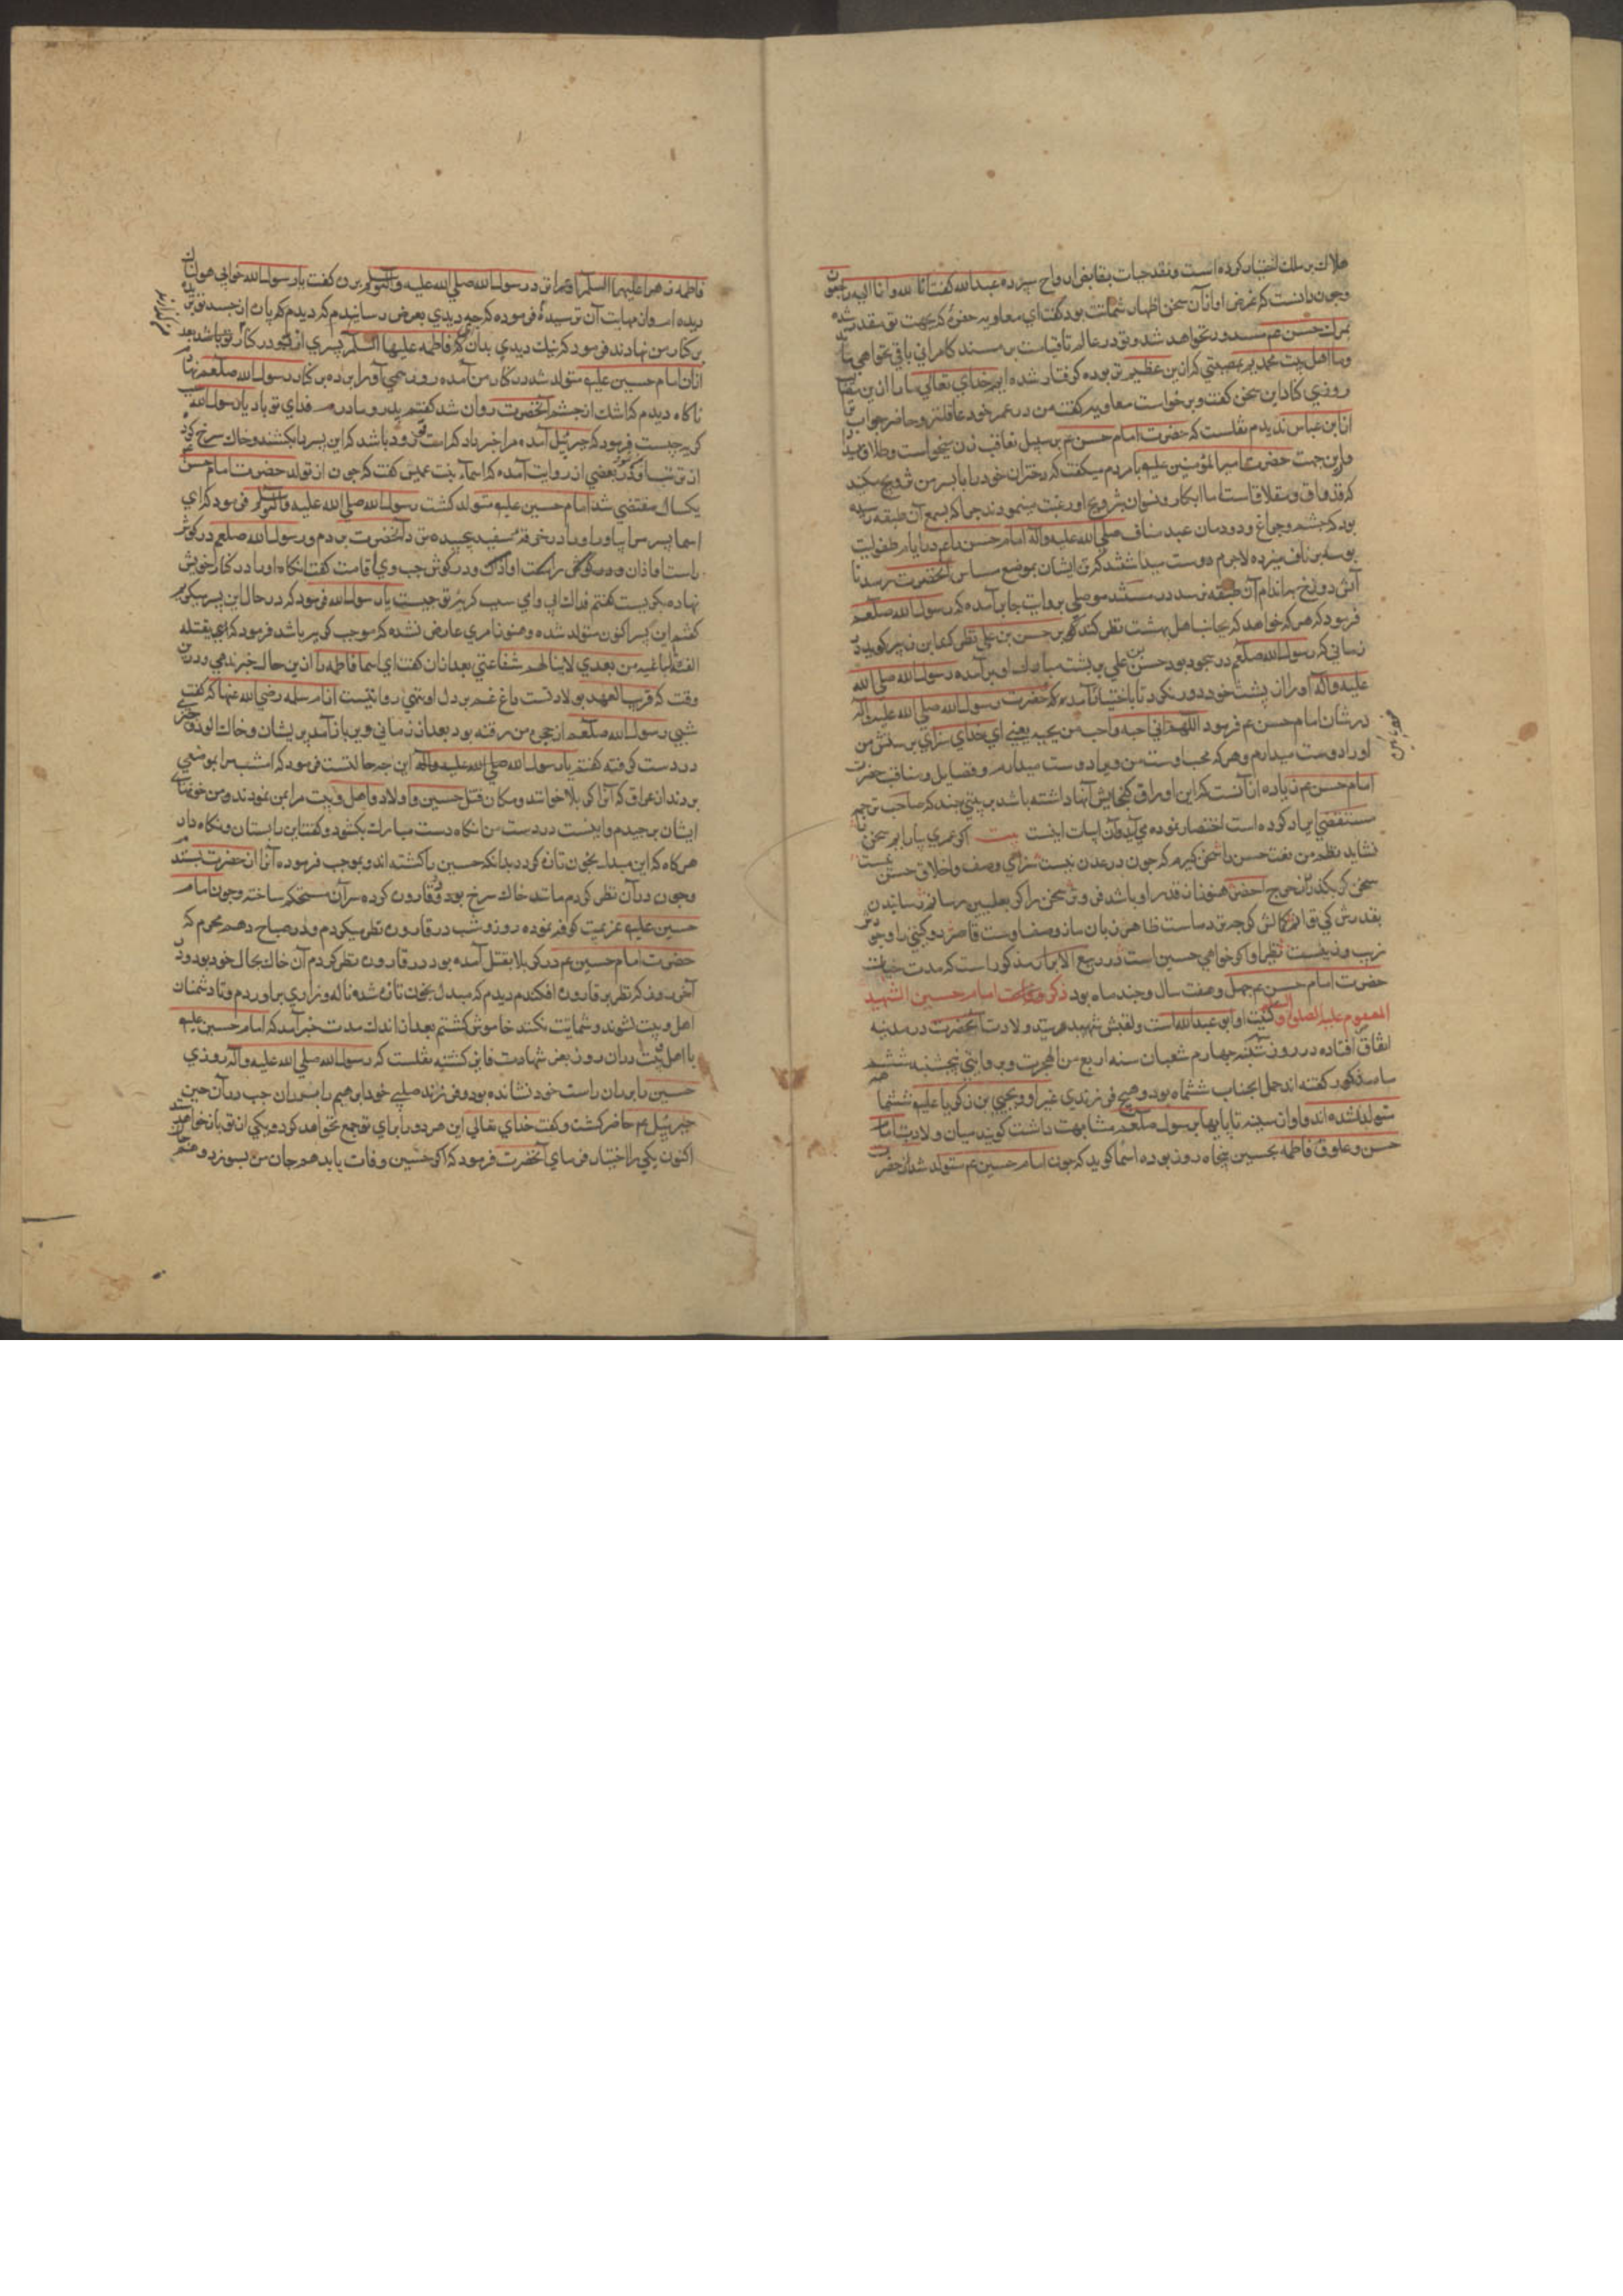 هلاك بر ملك اختيار كرده است و نقد حيات بقابض ارواح سپرده عبدالله كفت انا لله و انا اليه راجعون
و چون دانست كه غرض او از آن سخن اظهار شماتت بود كفت اى معاويه حفره كه بجهت تو مقدر شده
بمرك حسن عم مسدود نخواهد شد و تو در عالم تا قيامت بر مسند كامرانى باقى نخواهى ماند
و ما اهل بيت محمد بمصيبتي كه ازين عظيم تر بوده كرفتار شده ايم خداي تعالي ما را
روزي كه اين سخن كفت و برخواست معاويه كفت من در عمر خود عاقلتر و حاضر جواب تر
از ابن عباس نديدم نقلست كه حضرت امام حسن عم بر سبيل تعاقب زن ميخواست و طلاق ميداد
و ازين جهت حضرت امير المؤمنين عليه با مردم ميكفت كه دختران خود را با پسر من تزويج مكنيد
كه ذواق و مطلاقست اما ابكار و نسوان بتزويج او رغبت مينمودند چرا كه بسمع آن طبقه رسيده
بود كه چشم و چراغ دودمان عبد مناف صلي الله عليه وآله امام حسن را عم در ايام طفوليت
بوسه بر ناف ميزده لاجرم دوست ميداشتند كه تن ايشان بموضع مساس آنحضرت رسد تا
آتش دوزخ باندام آن طبقه نرسد در مسند موصلي بروايت جابر آمده كه رسول الله صلعم
فرمود كه هر كه خواهد كه بجانب اهل بهشت نظر كند كو بر حسن بن علي نظر كن ابن زبير كويد در
زماني كه رسول الله صلعم در سجود بود حسن بن علي بر پشت مبارك او بر آمده رسول الله صلي الله
عليه وآله او را از پشت خود دور نكرد تا باختيار آمد حضرت رسول الله صلي الله عليه وآله
در شان امام حسن عم فرمود اللهم اني احبه و احب من يحبه يعني اي خداي سزاي پرستش من
او را دوست ميدارم و هر كه محب اوست من ويرا دوست ميدارم و فضايل و مناقب حضرت
امام حسن عم زياده از آنست كه اين اوراق كنجايش آنها داشته باشد بر بيتي چند كه صاحب ترجمه
مستقصي ايراد كرده است اختصار نموده مي آيد و آن ابيات اينست بيت اكر عمري بپارايم سخن را
نشايد نظم من نعت حسن را سخن كيرم كه چون در عدن نيست سزاي وصف و اخلاق حسن نيست
سخن كر بكذرد از چرخ اخضر هنوز از قدر او باشد فروتر سخن را كر بعليين رسانم رسانيدن
بقدرش كي توانم كمالش كر چه بر دين ماست ظاهر زبان ما ز وصف اوست قاصر دو كيتي را وجودش
زيب و زينست نظير او كر خواهي حسين است در ربيع الابرار مذكور است كه مدت حيات
حضرت امام حسن عم چهل و هفت سال و چند ماه بود ذكر ولادت امام حسين الشهيد
المعصوم عليه الصلوة و السلام كنيت او ابو عبدالله است و لقبش شهيد و سيد ولادت آنحضرت در مدينه
اتفاق افتاده در روز شنبه چهارم شعبان سنه اربع من الهجرت و بروايتي پنجشنبه
ماه مذكور كفته اند حمل آنجناب ششماه بود و هيچ فرزندي غير او و يحيي بن زكريا عليه ششماهه
متولد نشده اند و او از سينه تا پايها برسول صلعم مشابهت داشت كويند ميان ولادت امام
حسن و علوق فاطمه بحسين پنجاه روز بوده اسما كويد كه چون امام حسين عم متولد شد از حضرت
فاطمه زهرا عليها السلم رسول الله صلي الله عليه وآله وسلم كفت يا رسول الله خوابي هولناك
ديده ام و از مهابت آن ترسيده فرموده كه چه ديدي بعرض رسانيدم كه ديدم كه پاره از جسد تو بريده
بر كنار من نهادند فرمود كه نيك ديدي بدان كه فاطمه عليها السلم پسري آورد و در كنار تو باشد بعد
از آن امام حسين عليه متولد شد در كنار من آمده روزي او را برده بر كنار رسول الله صلعم نهادم
ناكاه ديدم كه اشك از چشم آنحضرت روان شد كفتم پدر و مادرم فداي تو باد يا رسول الله
كريه چيست فرمود كه جبرئيل آمده مرا خبر داد كه امت تو زود باشد كه اين پسر را بكشند و خاك سرخ
از تربت او آورد بعضي از روايت آمده كه اسماء بنت عميس كفت كه چون از تولد حضرت امام حسن
يكسال مقتضي شد امام حسين عليه متولد كشت رسول الله صلي الله عليه وآله وسلم فرمود كه اي
اسما پسر مرا بياور او را در خرقه سفيد پيچيده نزد آنحضرت بردم و رسول الله صلعم در كوش
راست او اذان و در كوش چپ وي اقامت كفت انكاه او را در كنار خويش
نهاده بكريست كفتم فداك ابي و امي سبب كريه تو چيست يا رسول الله فرمود كه در حال اين پسر ميكريم
كفتم اين پسر اكنون متولد شده و هنوز امري عارض نشده كه موجب كريه باشد فرمود كه اي يقتله
الفئة الباغيه من بعدي لا انالهم شفاعتي بعد از آن كفت اي اسما فاطمه را ازين حال خبر ندهي درين
وقت كه قريب العهد بولادتست داغ غم بر دل او نهي روا نيست از ام سلمه رضي الله عنها كه كفت
شبي رسول الله صلعم از حجره من رفته بود بعد از زماني دير باز آمد پريشان و خاك آلود و چيزي
در دست كرفته كفتم يا رسول الله صلي الله عليه وآله اين چه حالتست فرمود كه امشب مرا بموضعي
بردند از عراق كه آنرا كربلا خوانند و مكان قتل حسين و اولاد و اهل بيت مرا بمن نمودند و من خونهاي
ايشان برچيدم و اينست در دست من انكاه دست مبارك بكشود و كفت اين را بستان و نكاه دار
هر كاه كه اين مبدل بخون تازه كردد بدانكه حسين را كشته اند و بموجب فرموده آنرا از حضرت بستدم
و چون در آن نظر كردم مانند خاك سرخ بود در قاروره كرده سر آن مستحكم ساخته و چون امام
حسين عليه عزيمت كوفه نموده روز و شب در قاروره نظر ميكردم و در صباح دهم محرم كه
حضرت امام حسين عم در كربلا بقتل آمده بود در قاروره نظر كردم آن خاك بحال خود بود و در
آخر روز كه نظر بر قاروره افكندم ديدم كه مبدل بخون تازه شده ناله و زاري بر آوردم و تا دشمنان
اهل بيت نشنوند و شماتت نكنند خاموش كشتم بعد از اندك مدت خبر آمد كه امام حسين عليه
با اهل بيت در آن روز بعز شهادت فايز كشته نقلست كه رسول الله صلي الله عليه وآله روزي
حسين را بر ران راست خود نشانده بود و فرزند صلبي خود ابراهيم را بر ران چپ در آن حين
جبرئيل عم حاضر كشت و كفت خداي تعالي اين هر دو را براي تو جمع نخواهد كرد و يكي از تو باز خواهد ستد
اكنون يكي را اختيار فرماي آنحضرت فرمود كه اكر حسين وفات يابد هم جان من بسوزد و هم